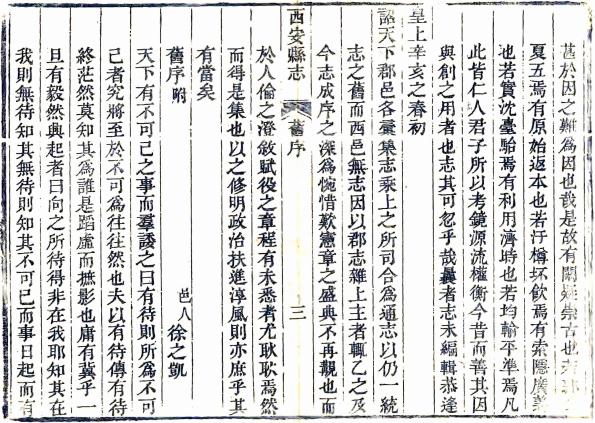 甚於因之難為因也哉是故有闕疑崇古也若郭
夏五焉有原始返本也若汙樽坏飲焉有索隱廣
也若實沈臺駘焉有利用濟時也若均輸平準焉凡
此皆仁人君子所以考鏡源流權衡今昔而善其因
與創之用者也志其可忽乎哉曩者志未編輯恭逢
皇上辛亥之春初
詔天下郡邑各彚集志乘上之所司合為通志以仍一統
志之舊而西邑無志因以郡志雜上主者輒乙之及
今志成序之深為惋惜歎憲章之盛典不再覯也而
西安縣志 舊序 三
於人倫之澄敘賦役之章程有未悉者尤耿耿焉然
而得是集也以之修明政治扶進淳風則亦庶乎其
有當矣
舊序附 邑人徐之凱
天下有不可已之事而羣諉之曰有待則所為不可
已者究將至於不可為往往然也夫以有待傳有待
終茫然莫知其為誰是蹈虛而摭影也庸有冀乎一
旦有毅然興起者曰向之所待得非在我耶知其在
我則無待知其無待則知其不可已而事日起而有